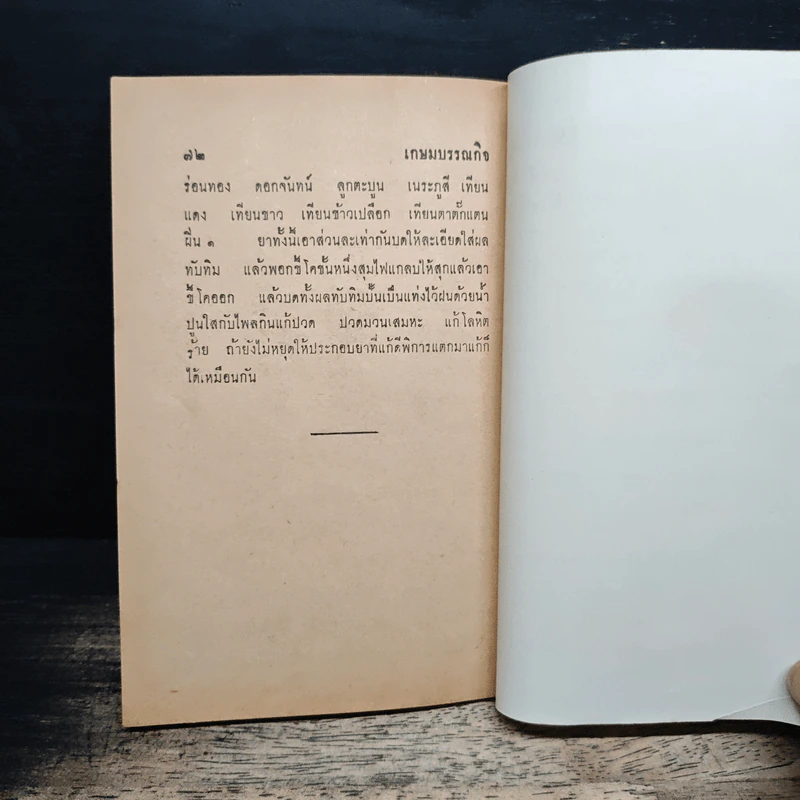 ๗๒ เกษมบรรณกิจ
ร่อนทอง ดอกจันทน์ ลูกตะบูน เนระภูสี เทียน
แดง เทียนขาว เทียนข้าวเปลือก เทียนตาตั๊กแตน
ฝิ่น ๑ ยาทั้งนี้เอาส่วนละเท่ากันบดให้ละเอียดใส่ผล
ทับทิม แล้วพอกขี้โคชั้นหนึ่งสุมไฟแกลบให้สุกแล้วเอา
ขี้โคออก แล้วบดทั้งผลทับทิมปั้นเป็นแท่งไว้ฝนด้วยน้ำ
ปูนใสกับไพลกินแก้ปวด ปวดมวนเสมหะ แก้โลหิต
ร้าย ถ้ายังไม่หยุดให้ประกอบยาที่แก้ดีพิการแตกมาแก้ก็
ได้เหมือนกัน